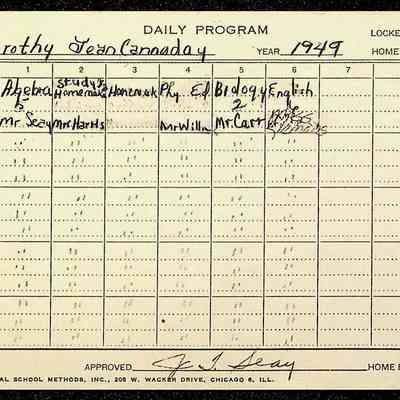 DAILY PROGRAM
LOCKE
rothy Jean Cannaday YEAR 1949 HOME
1 2 3 4 5 6 7
Algebra Study & Homemak Phy Ed Biology English
5 Homemak 2 6
Mr Seay Mrs Harris Mr Willi Mr. Carr
APPROVED J. T. Seay HOME
AL SCHOOL METHODS, INC., 205 W. WACKER DRIVE, CHICAGO 6, ILL.